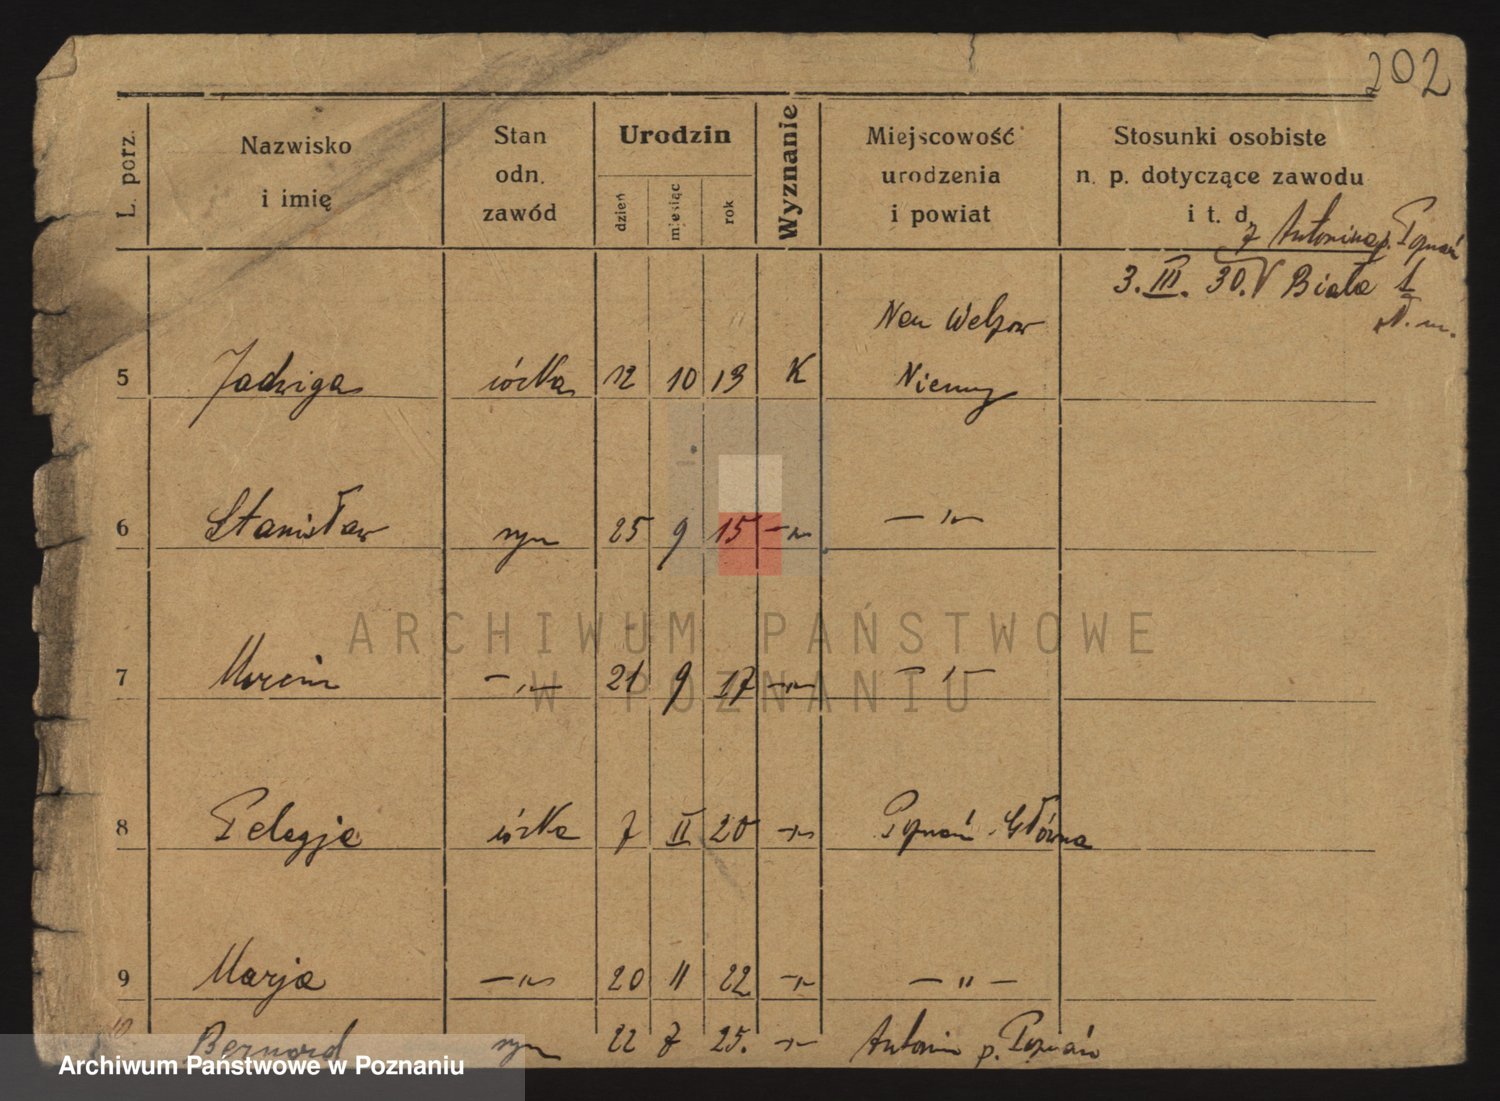 202
L. porz.
Nazwisko i imię
Stan odn. zawód
Urodzin
dzień miesiąc rok
Wyznanie
Miejscowość urodzenia i powiat
Stosunki osobiste n. p. dotyczące zawodu i t. d.
z Antonina p. Poznań
3. III. 30. Biała 1
Neu Welzow
5 Jadwiga córka 12 10 13 K Niemcy
6 Stanisław syn 25 9 15 — " — — " —
7 Marcin — " — 21 9 17 — " — — " —
8 Pelagja córka 7 II 20 — " — Poznań Główna
9 Marja — " — 20 11 22 — " — — " —
10 Bernard syn 22 7 25. — " — Antonin p. Poznań
ARCHIWUM PAŃSTWOWE
W POZNANIU
Archiwum Państwowe w Poznaniu